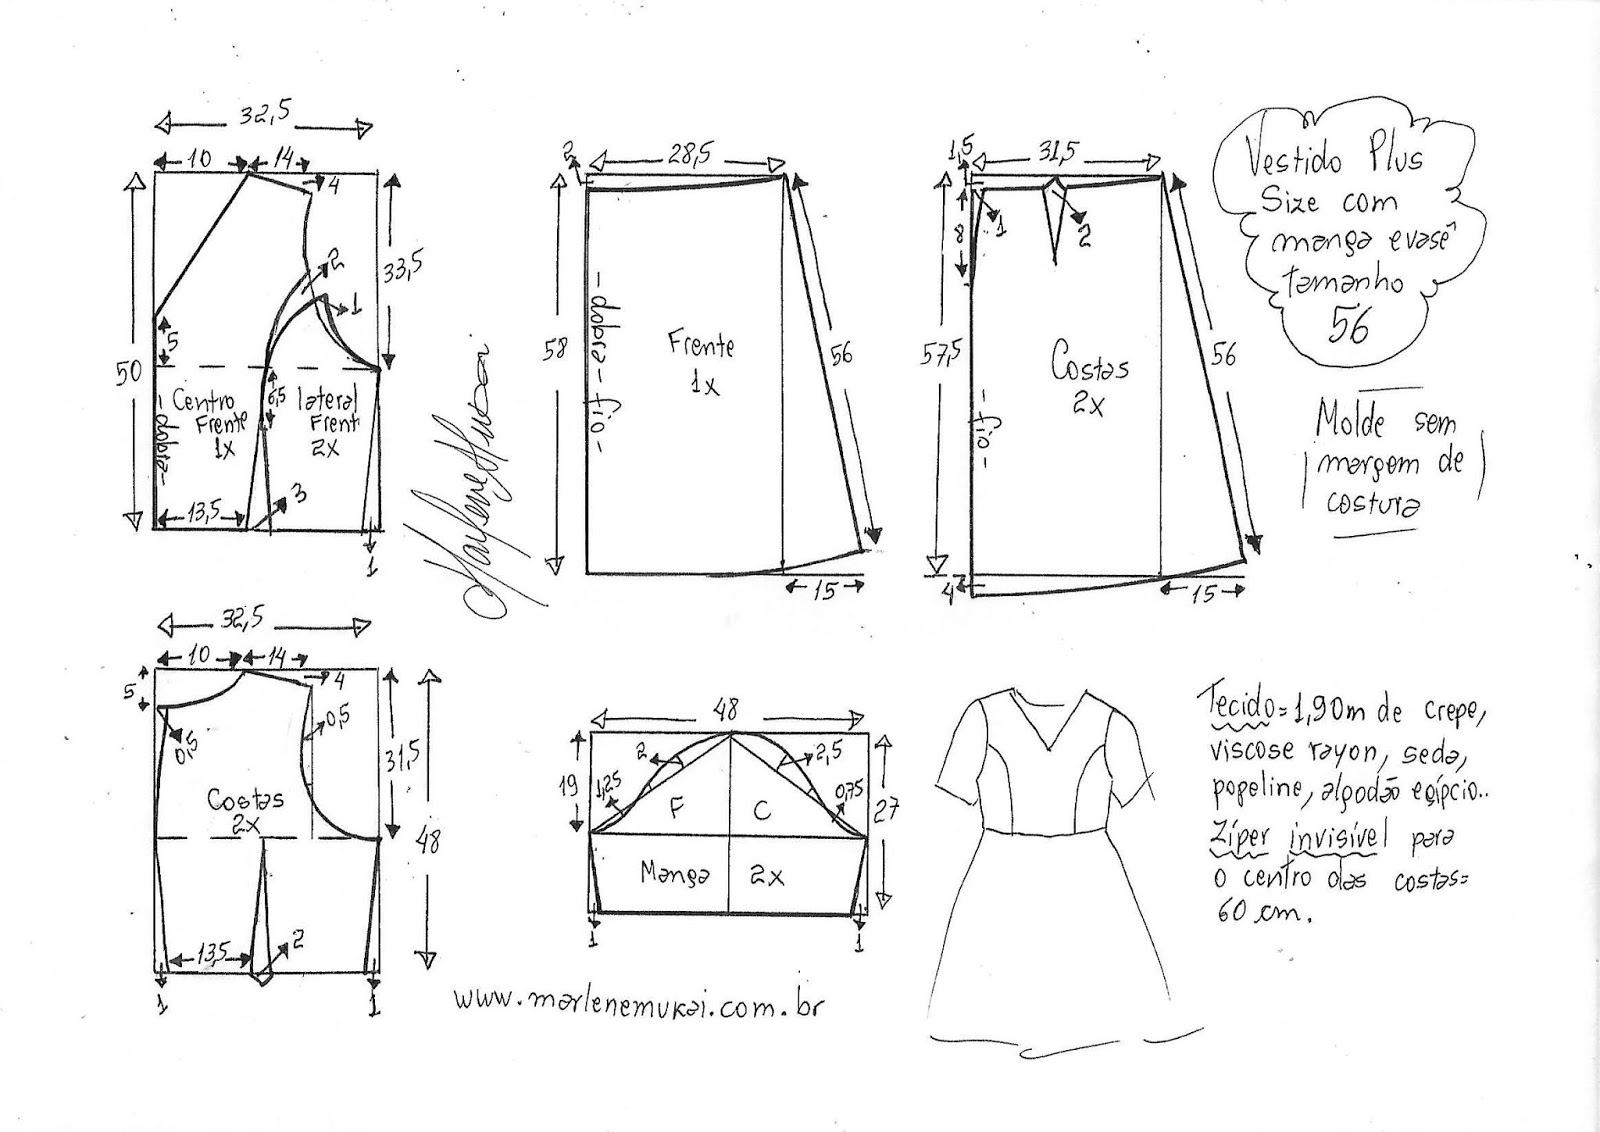 32,5
10
14
4
2
1
5
50
33,5
Centro
Frente
1x
6,5
lateral
Frent
2x
-dobra-
13,5
3
1
2
28,5
58
-dobra-fio-
Frente
1x
56
15
1,5
31,5
8
1
2
57,5
-fio-
Costas
2x
56
4
15
Vestido Plus
Size com
manga evasê
tamanho
56
Molde sem
margem de
costura
32,5
10
14
5
4
0,5
0,5
31,5
Costas
2x
48
13,5
2
1
1
48
19
2
2,5
1,25
0,75
F
C
27
Manga 2x
1
1
Tecido=1,90m de crepe,
viscose rayon, seda,
popeline, algodão egípcio..
Zíper invisível para
o centro das costas=
60 cm.
www.marlenemukai.com.br
Marlene Mukai